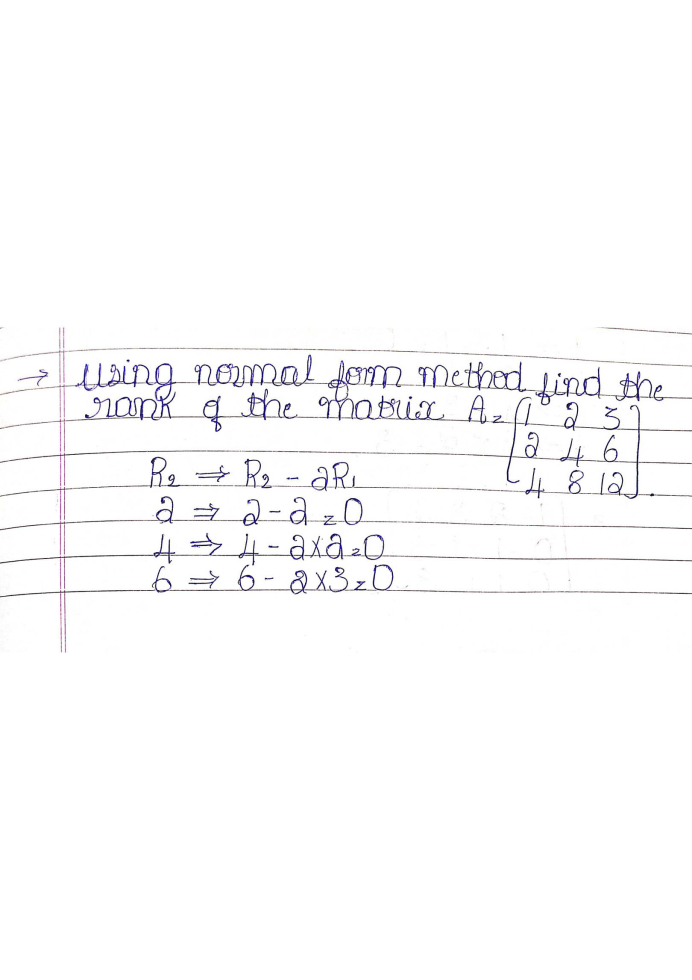 → Using normal form method find the
rank of the matrix A = [1 2 3
2 4 6
4 8 12].
R₂ ⇒ R₂ - 2R₁
2 ⇒ 2 - 2 = 0
4 ⇒ 4 - 2x2 = 0
6 ⇒ 6 - 2x3 = 0